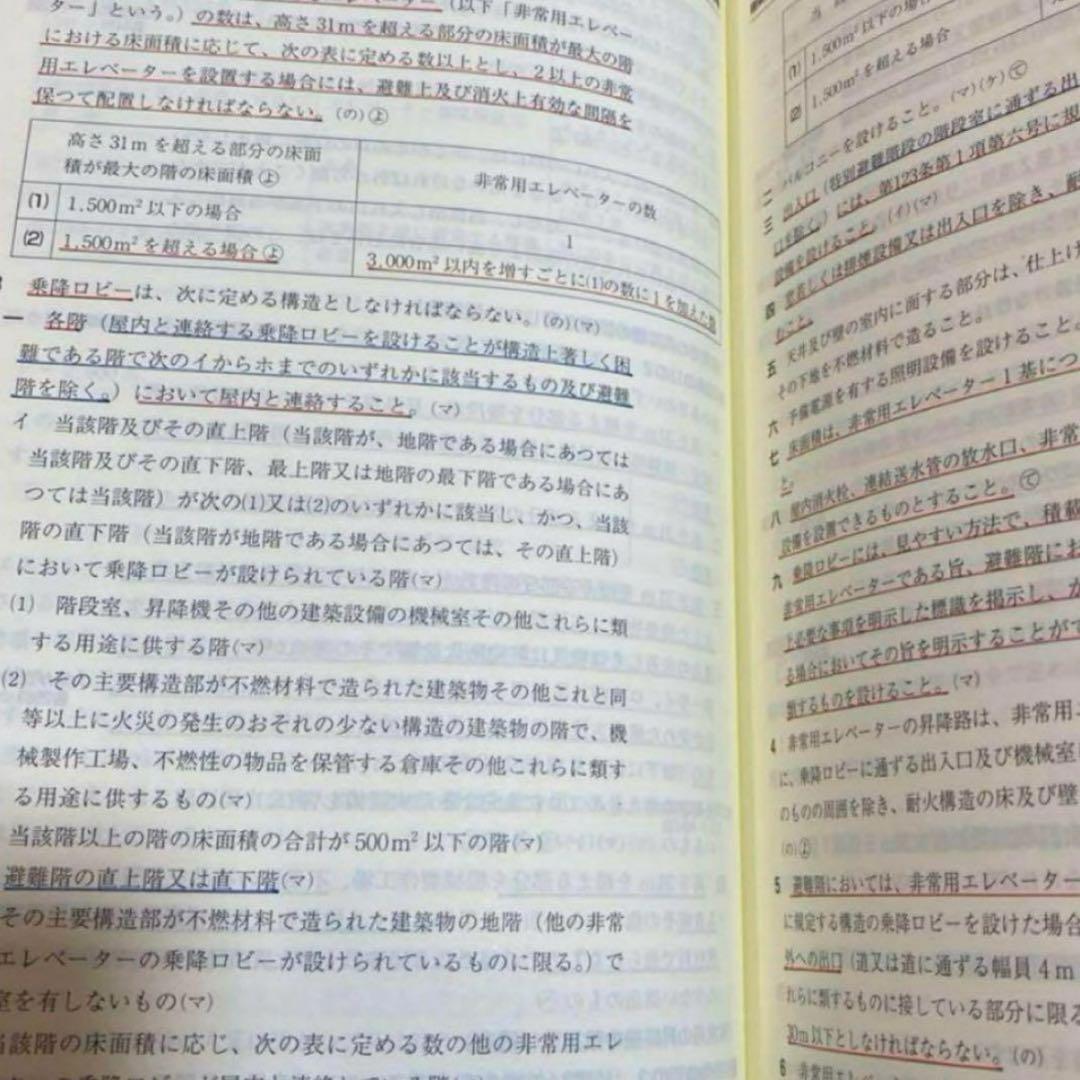 (以下「非常用エレベー
ター」という。)の数は、高さ31mを超える部分の床面積が最大の階
における床面積に応じて、次の表に定める数以上とし、2以上の非常
用エレベーターを設置する場合には、避難上及び消火上有効な間隔を
保つて配置しなければならない。(の)よ
高さ31mを超える部分の床面
積が最大の階の床面積よ
非常用エレベーターの数
(1) 1.500m²以下の場合
1
(2) 1,500m²を超える場合よ
3,000m²以内を増すごとに(1)の数に1を加えた数
乗降ロビーは、次に定める構造としなければならない。(の)(マ)
一 各階(屋内と連絡する乗降ロビーを設けることが構造上著しく困
難である階で次のイからホまでのいずれかに該当するもの及び避難
階を除く。)において屋内と連絡すること。(マ)
イ 当該階及びその直上階(当該階が、地階である場合にあつては
当該階及びその直下階、最上階又は地階の最下階である場合にあ
つては当該階)が次の(1)又は(2)のいずれかに該当し、かつ、当該
階の直下階(当該階が地階である場合にあつては、その直上階)
において乗降ロビーが設けられている階(マ)
(1) 階段室、昇降機その他の建築設備の機械室その他これらに類
する用途に供する階(マ)
(2) その主要構造部が不燃材料で造られた建築物その他これと同
等以上に火災の発生のおそれの少ない構造の建築物の階で、機
械製作工場、不燃性の物品を保管する倉庫その他これらに類す
る用途に供するもの(マ)
当該階以上の階の床面積の合計が500m²以下の階(マ)
避難階の直上階又は直下階(マ)
その主要構造部が不燃材料で造られた建築物の地階(他の非常
エレベーターの乗降ロビーが設けられているものに限る。)で
室を有しないもの(マ)
当該階の床面積に応じ、次の表に定める数の他の非常用エレ
1,500m²以下の場合
(1)
1,500m²を超える場合
(2)
二 バルコニーを設けること。(マ)(ケ)て
三 出入口(特別避難階段の階段室に通ずる出
口を除く。)には、第123条第1項第六号に規
設備を設けること。(イ)(マ)
四 窓若しくは排煙設備又は出入口を除き、耐
むこと。
五 天井及び壁の室内に面する部分は、仕上げ
その下地を不燃材料で造ること。
六 予備電源を有する照明設備を設けること。
七 床面積は、非常用エレベーター1基につ
と。
八 屋内消火栓、連結送水管の放水口、非常
設備を設置できるものとすること。て
九 乗降ロビーには、見やすい方法で、積載
非常用エレベーターである旨、避難階にお
上必要な事項を明示した標識を掲示し、か
る場合においてその旨を明示することがで
類するものを設けること。(マ)
4 非常用エレベーターの昇降路は、非常用
に、乗降ロビーに通ずる出入口及び機械室
のものの周囲を除き、耐火構造の床及び壁
(の)よ
5 避難階においては、非常用エレベーター
に規定する構造の乗降ロビーを設けた場合
外への出口(道又は道に通ずる幅員4m
れらに類するものに接している部分に限る
30m以下としなければならない。(の)
6 非常用エレベー